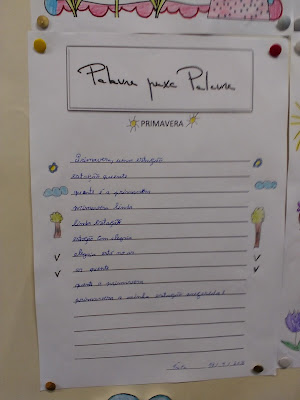 Palavra puxa Palavra
PRIMAVERA
Primavera, uma estação
estação quente
quente é a primavera
primavera linda
linda estação
estação com alegria
alegria está no ar
ar quente
quente é primavera
primavera a minha estação